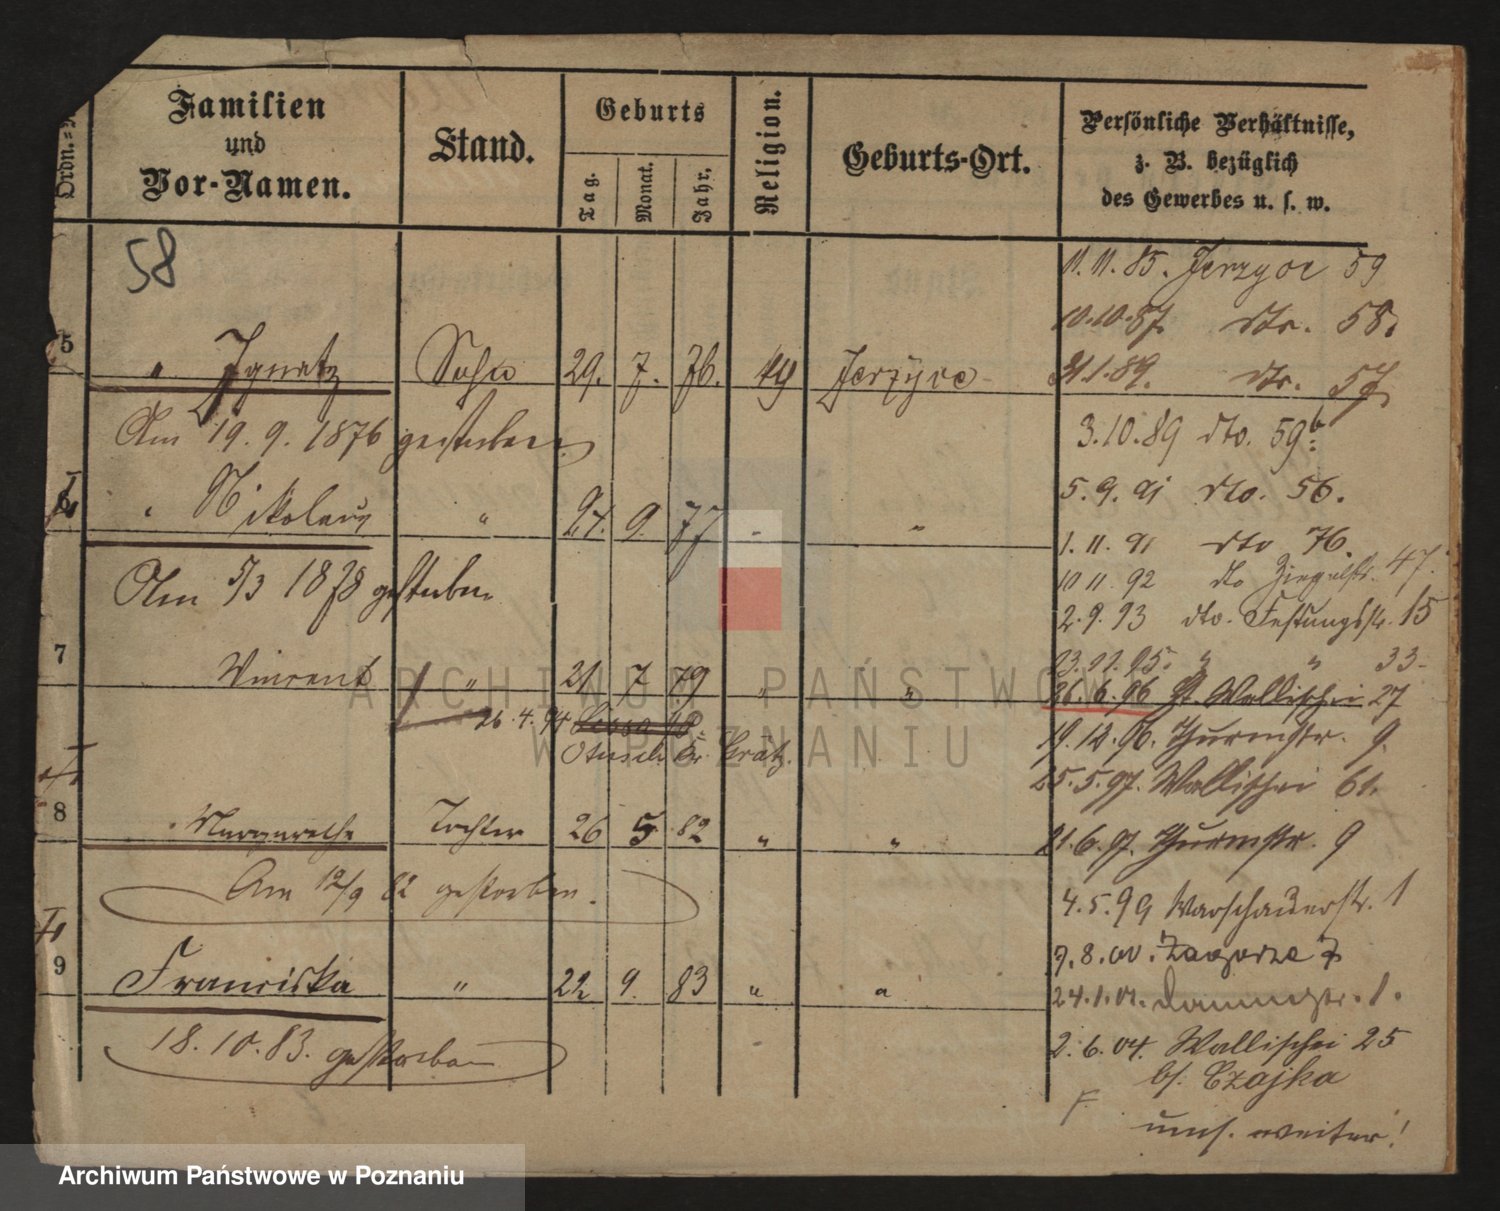 Ordn.=
Familien
und
Vor-Namen.
Stand.
Geburts
Tag.
Monat.
Jahr.
Religion.
Geburts-Ort.
Persönliche Verhältnisse,
z. B. bezüglich
des Gewerbes u. s. w.
58
11.11.85. Jerzyce 59
10.10.87. dto. 58.
31.1.89. dto. 57
5 " Ignatz Sohn 29. 7. 76. Jerzyce
Am 19. 9. 1876 gestorben
3.10.89 dto. 59
5.9.91 dto. 56.
6 " Nikolaus " 24. 9. 77 " "
1.11.91 dto 76.
Am 5/3 1878 gestorben
10 11. 92 dto Ziegelstr. 47.
2.9.93 dto. Festungsstr. 15
7 Vincent " 21 7 79 " "
23.11.95. " " 33
26.6.96 Wallischei 27
26.4.94
Otusch Kr. Grätz.
19.12.96. Thurmstr. 9.
25.5.97. Wallischei 61.
8 " Margarethe Tochter 26 5 82 " "
21.6.97. Thurmstr. 9
Am 12/9 82 gestorben.
4.5.99 Warschauerstr. 1
7.8.00. Zagorze 7
9 Franciska " 22 9. 83 " "
24.1.01. Dammstr. 1.
18.10.83. gestorben
2.6.04. Wallischei 25
b/. Czajka
F.
weiter!
ARCHIWUM PAŃSTWOWE
W POZNANIU
Archiwum Państwowe w Poznaniu